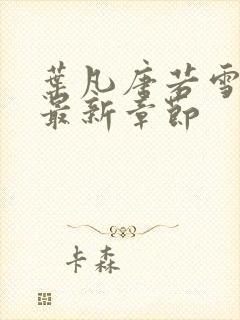 葉凡唐若雪
最新章節
卡森